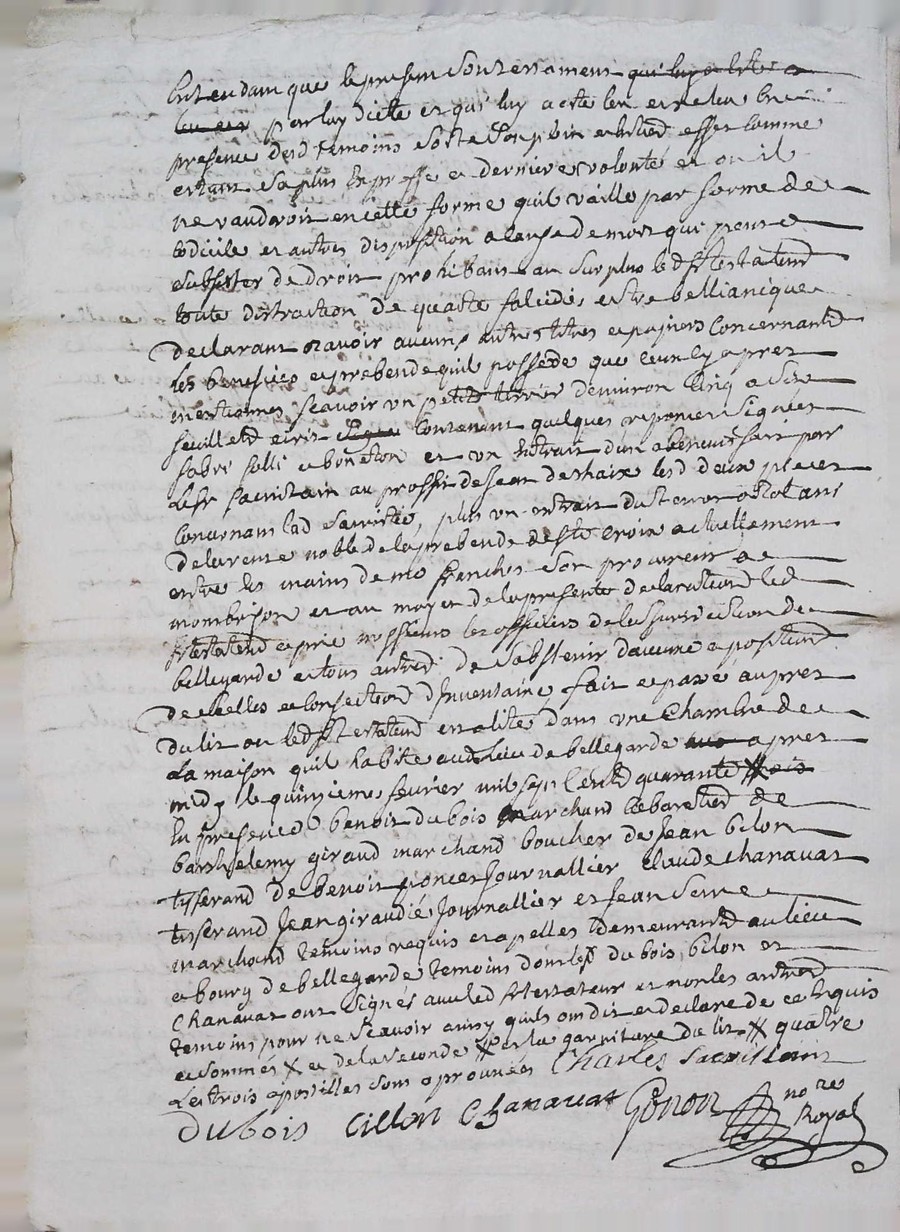 Entendant que le present son testament qui luy a esté
par luy dicté et qui luy a esté leu et releu En
presence desd temoins sorte son plein et entier effet comme
estant sa plus Expresse et derniere volonté et ou il
ne vaudroit en cette forme quil vaille par forme de
codicile et autres disposition a cause de mort qui peut
subsister de droit prohibant au surplus led sr testateur
toute distraction de quarte falcidie et trebellianique
declarant navoir aucuns autres titres et papiers Concernant
les benefices et prebende quil possede que ceux cy apres
mentionnes scavoir un petit terrier denviron cinq a six
feuillets ecrit Contenant quelques reponces signees
fabri et boneton et un Extrait dun abenevis fait par
led sr sacristain au proffit de Jean deshaix lesd deux pieces
Concernant lad sacristie, plus un extrait du terrier
de la rente noble de la prebende de ste Croix actuellement
entre les mains de me franchet son procureur de
mombrison et au moyen de la presente declaration led
sr testateur prie messieurs les officiers de la Jurisdiction de
bellegarde et tous autres de sabstenir daucune aposition
de scelles et Confection dInventaire fait et passé aupres
du lit ou led sr testateur est alité dans une Chambre de
la maison quil habite aud lieu de bellegarde apres
midy le quinzieme fevrier mil sept Cent quarante trois
En presence de benoit dubois marchand Cabaretier de
barthelemy giraud marchand boucher de Jean Cilon
tisserand de benoit poncet Journallier Claude Chanavat
tisserand Jean giraudié Journallier et Jean Serre
marchand temoins requis et apelles demeurant au lieu
et bourg de bellegarde temoins dont led dubois Cilon et
Chanavat ont signés avec led sr testateur et non les autres
temoins pour ne scavoir ainsy quils ont dit et declaré de ce Enquis
et sommés X et de la seconde X et la garniture du lit X quatre
Les trois apostilles sont aprouvées Charles sacristain
dubois Cillon Chanavat Gonon nore
Royal